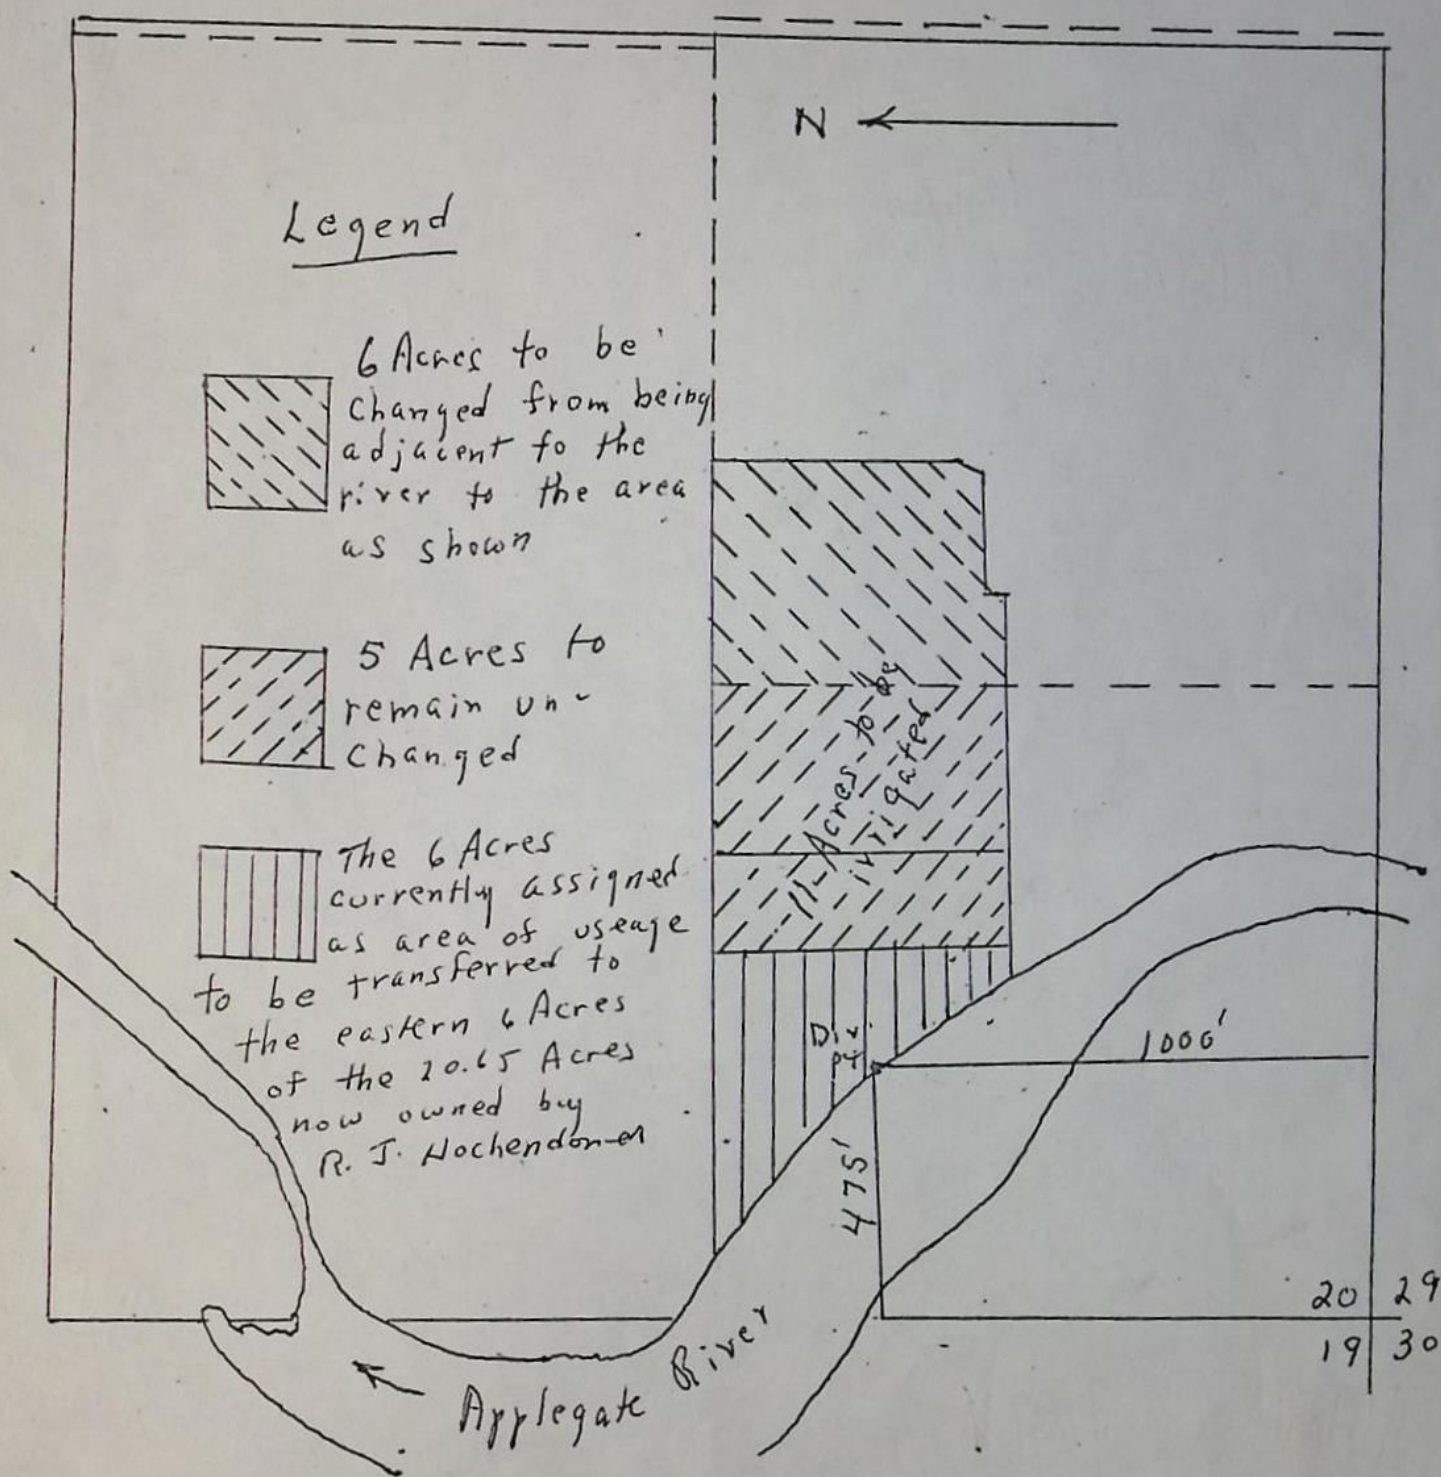 N
Legend
6 Acres to be
Changed from being
adjacent to the
river to the area
as shown
5 Acres to
remain un-
Changed
The 6 Acres
currently assigned
as area of useage
to be transferred to
the eastern 6 Acres
of the 20.65 Acres
now owned buy
R. J. Hochendoner
11 Acres to be
irrigated
Div.
Pt.
1000'
475'
20 29
19 30
Applegate River